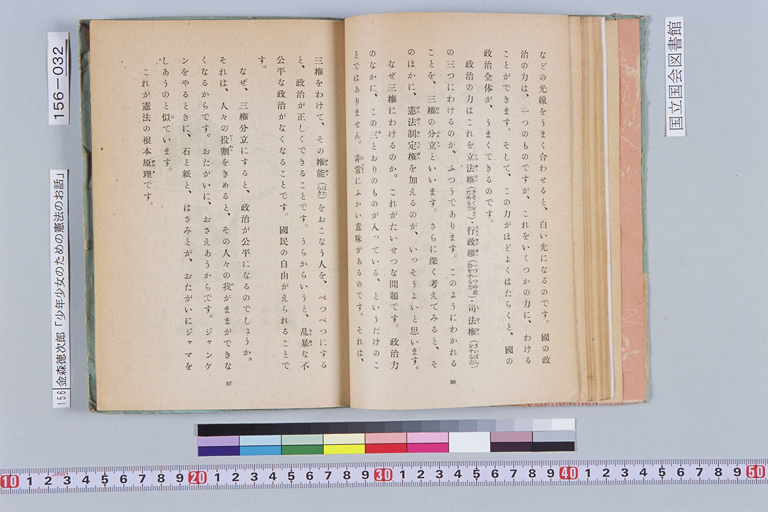 などの光線をうまく合わせると、白い光になるのです。國の政
治の力は、一つのものですが、これをいくつかの力に、わける
ことができます。そして、この力がほどよくはたらくと、國の
政治全体が、うまくできるのです。
政治の力はこれを立法権・行政権・司法権
の三つにわけるのが、ふつうであります。このようにわかれる
ことを、三権の分立といいます。さらに深く考えてみると、そ
のほかに、憲法制定権を加えるのが、いっそうよいと思います。
なぜ三権にわけるのか。これがたいせつな問題です。政治力
のなかに、この三とおりのものが入っている、というだけのこ
とではありません。非常にふかい意味があるのです。それは、
56
三権をわけて、その権能(はたらき)をおこなう人を、べつべつにする
と、政治が正しくできることです。うらからいうと、乱暴な不
公平な政治がなくなることです。國民の自由がえられることで
す。
なぜ、三権分立にすると、政治が公平になるのでしょうか。
それは、人々の役割をきめると、その人々の我がままができな
くなるからです。おたがいに、おさえあうからです。ジャンケ
ンをやるときに、石と紙と、はさみとが、おたがいにジャマを
しあうのと似ています。
これが憲法の根本原理です。
57
国立国会図書館
156-032
156 金森徳次郎「少年少女のための憲法のお話」
10 1 2 3 4 5 6 7 8 9 20 1 2 3 4 5 6 7 8 9 30 1 2 3 4 5 6 7 8 9 40 1 2 3 4 5 6 7 8 9 50